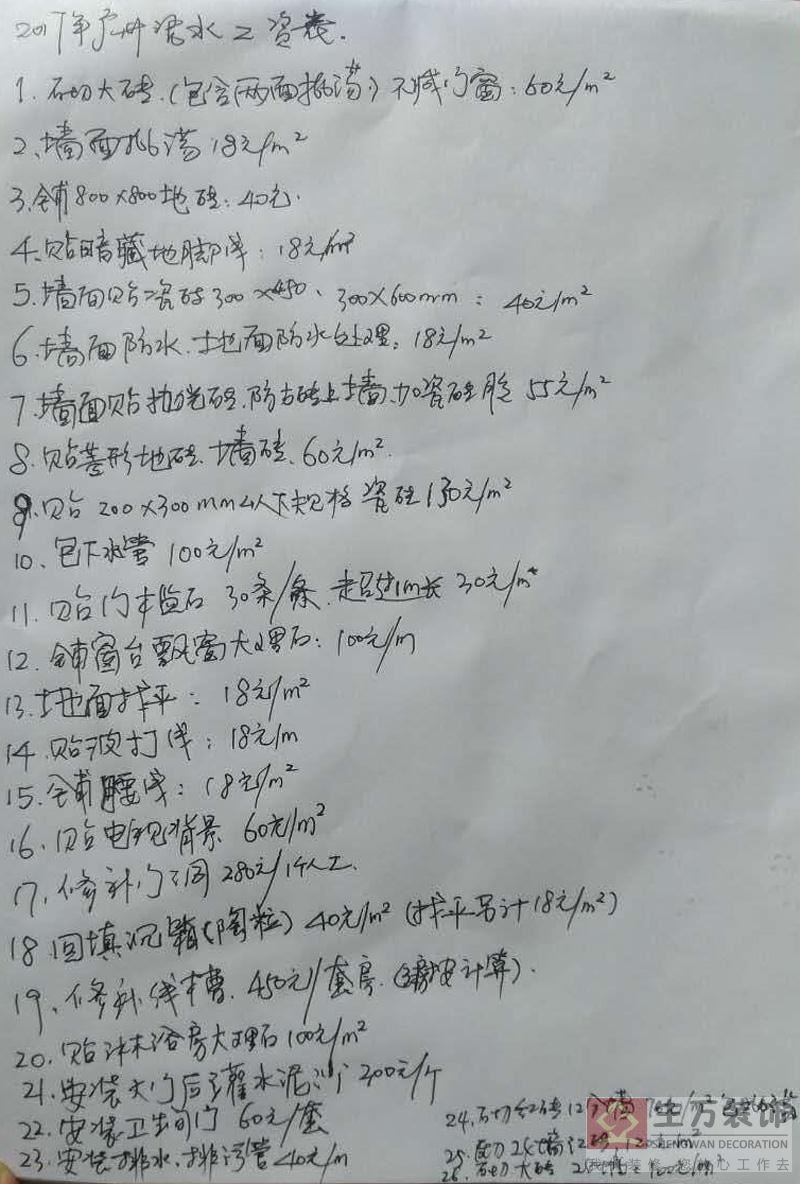 2017年泥水工资表.
1. 切大砖.(包含两面批荡)不减门窗:60元/m²
2、墙面批荡18元/m²
3.铺800×800地砖:40元.
4.贴暗藏地脚线:18元/m²
5.墙面贴瓷砖300×450、300×600mm:40元/m²
6.墙面防水.地面防水处理:18元/m²
7.墙面贴抛光砖.防古砖上墙.加瓷砖胶55元/m²
8.贴菱形地砖、墙砖、60元/m².
9.贴200×300mm以下规格瓷砖130元/m²
10、包下水管100元/m²
11.贴门槛石30条/条.超过1m长30元/m
12.铺窗台飘窗大理石:100元/m
13.地面找平:18元/m²
14.贴波打线:18元/m
15.铺腰线:18元/m²
16.贴电视背景60元/m²
17.修补门洞280元/1个人工.
18.回填沉箱(陶粒)40元/m²(找平另计18元/m²)
19、修补线槽.450元/套房.(按计算).
20.贴淋浴房大理石100元/m²
21.安装大门后灌水泥 200元/个
22.安装卫生间门60元/套
23.安装排水.排污管40元/m
24.切红砖12墙
25. 12墙
26. 切大砖 100元/m²
生方装饰
DOSHENGWAN DECORATION
我们装修 您的心工作去